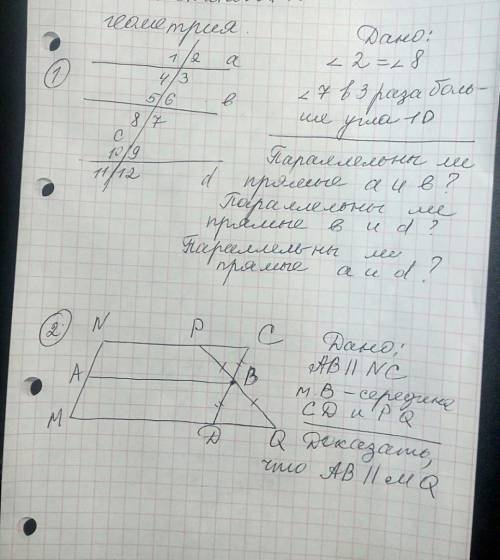 геометрия.
Дано:
∠2=∠8
∠7 в 3 раза боль-
ше угла 10
Параллельны ли
прямые a и в?
Параллельны ли
прямые в и d?
Параллельны ли
прямые a и d?
1
1 2 a
4 3
5 6 в
8 7
c
10 9
11 12 d
2
N P C
A B
M D Q
Дано:
AB || NC
т. B - середина
CD и PQ
Доказать,
что AB || MQ